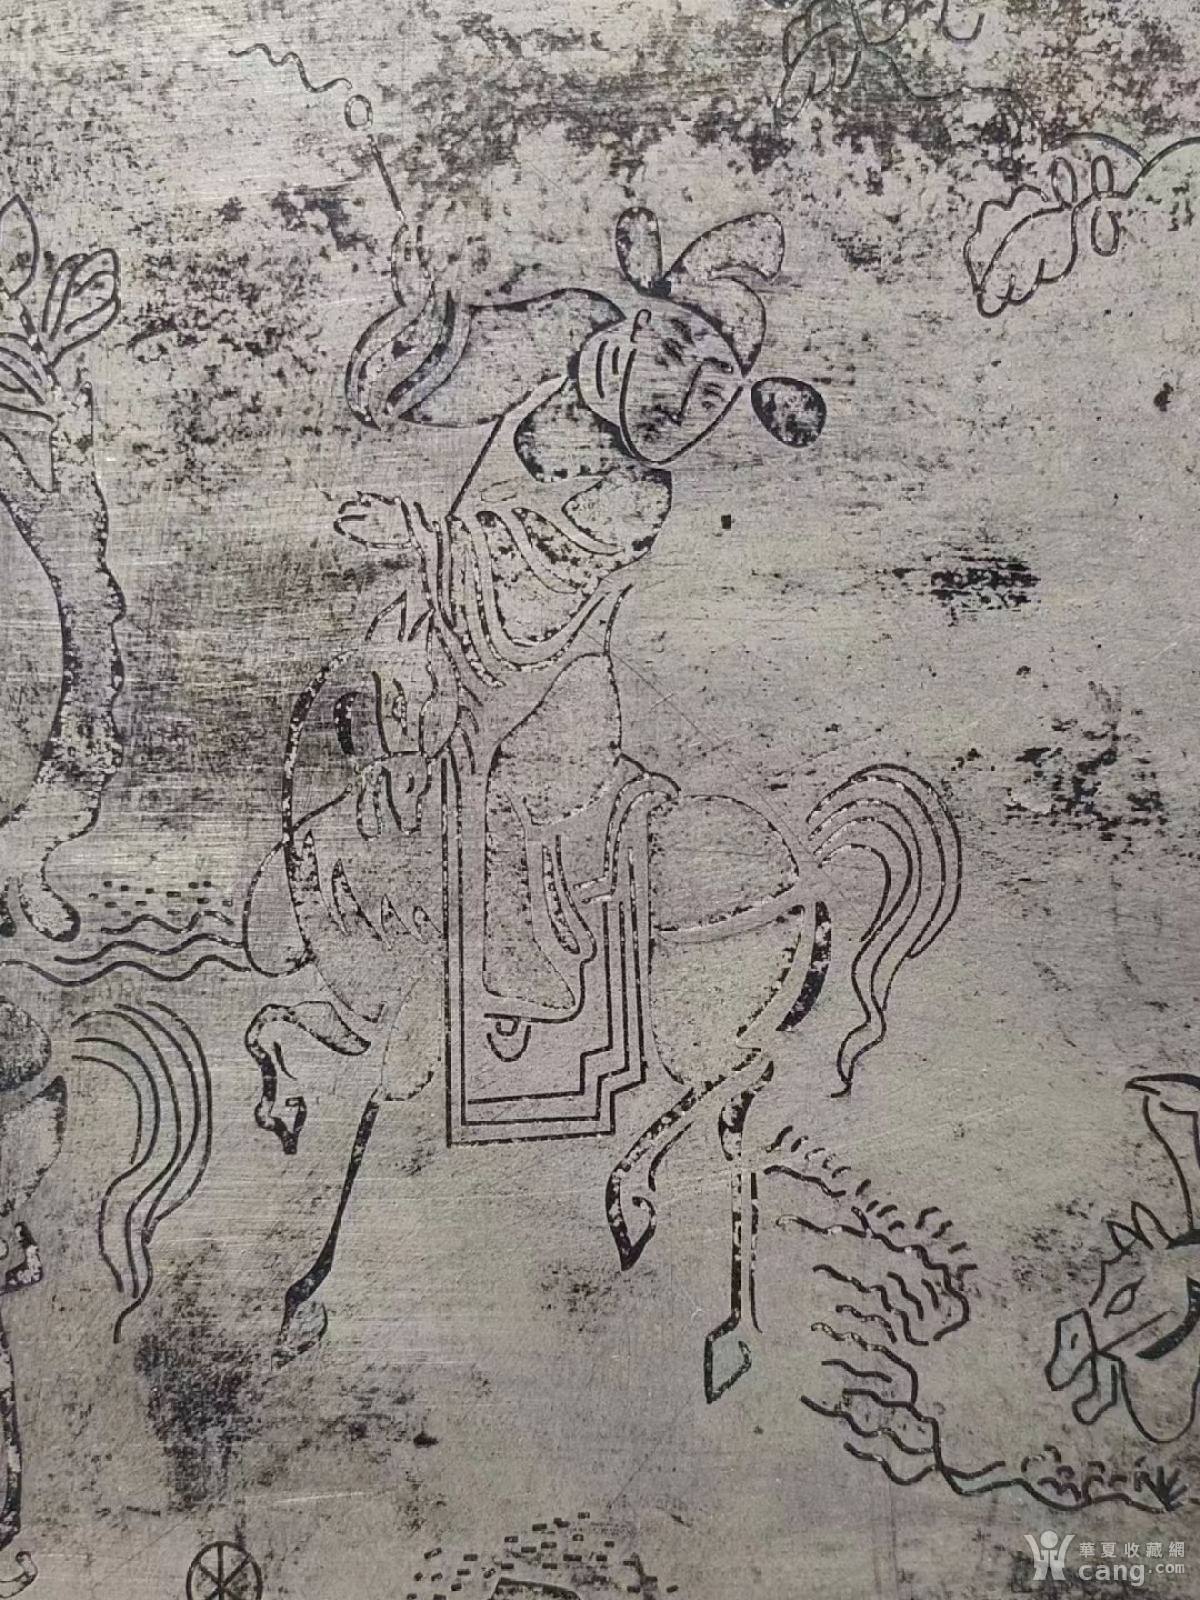 華夏收藏網
cang.com